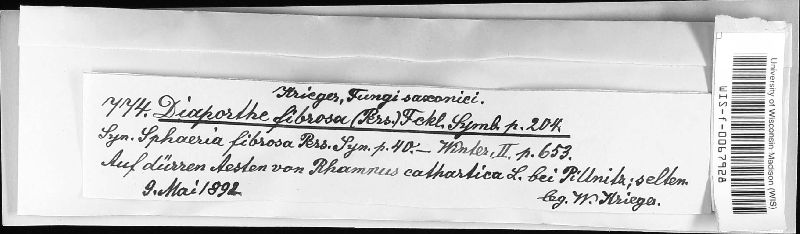 Krieger, Fungi saxonici.
774. Diaporthe fibrosa (Pers.) Fckl. Symb. p. 204.
Syn. Sphaeria fibrosa Pers. Syn. p. 40.— Winter, II. p. 653.
Auf dürren Aesten von Rhamnus cathartica L. bei Pillnitz; selten.
9. Mai 1892. leg. W. Krieger.
University of Wisconsin Madison (WIS)
WIS-f-0067928